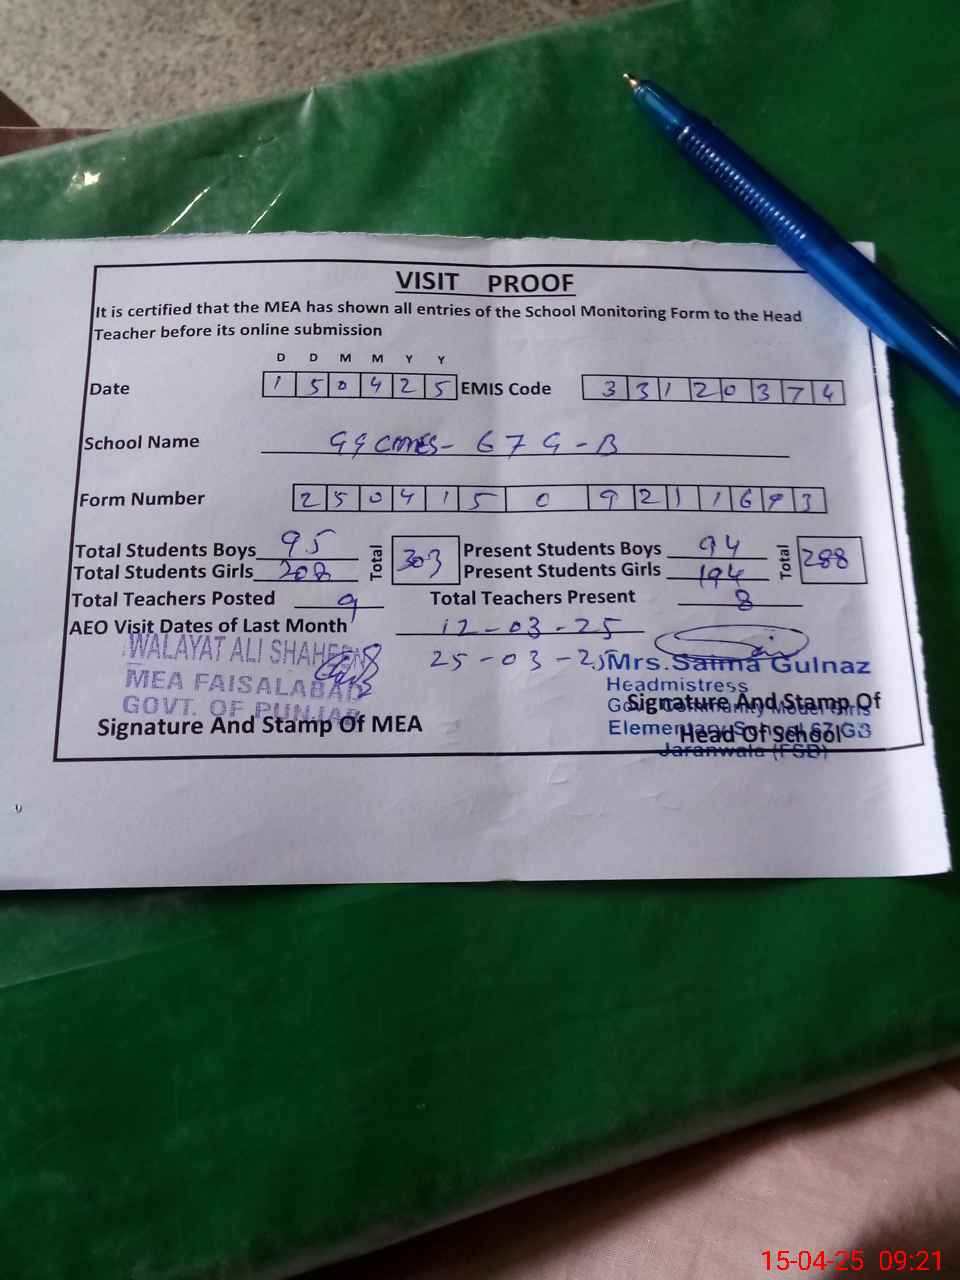 VISIT PROOF
It is certified that the MEA has shown all entries of the School Monitoring Form to the Head
Teacher before its online submission
D D M M Y Y
Date 1 5 0 4 2 5 EMIS Code 3 3 1 2 0 3 7 4
School Name GGCMES- 67 G-B
Form Number 2 5 0 4 1 5 0 9 2 1 1 6 9 3
Total Students Boys 95 Total 303 Present Students Boys 94 Total 288
Total Students Girls 208 Present Students Girls 194
Total Teachers Posted 9 Total Teachers Present 8
AEO Visit Dates of Last Month 12-03-25
25-03-25
WALAYAT ALI SHAHEEN
MEA FAISALABAD
GOVT. OF PUNJAB
Signature And Stamp Of MEA
Mrs. Saima Gulnaz
Headmistress
Govt. Community Model Girls
Elementary School 67 GB
Jaranwala (FSD)
Signature And Stamp Of
Head Of School
15-04-25 09:21